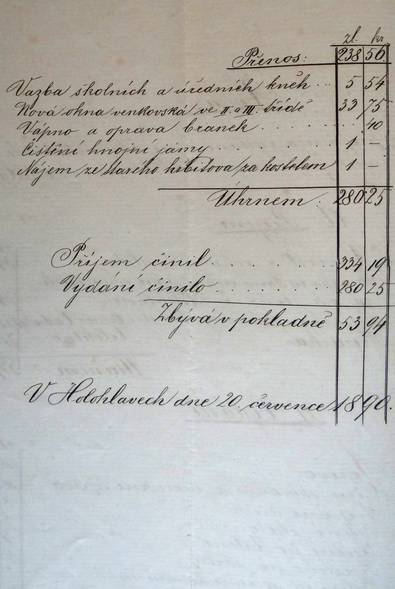 zl. kr.
Přenos: 238 56
Vazba školních a úředních kněh... 5 54
Nová okna venkovská ve II. a III. třídě 33 75
Vápno a oprava branek... 40
Čištění hnojní jámy... 1 —
Nájem ze starého hřbitova za kostelem 1 —
Úhrnem: 280 25
Příjem činil... 334 19
Vydání činilo... 280 25
Zbývá v pokladně 53 94
V Holohlavech dne 20. července 1890.